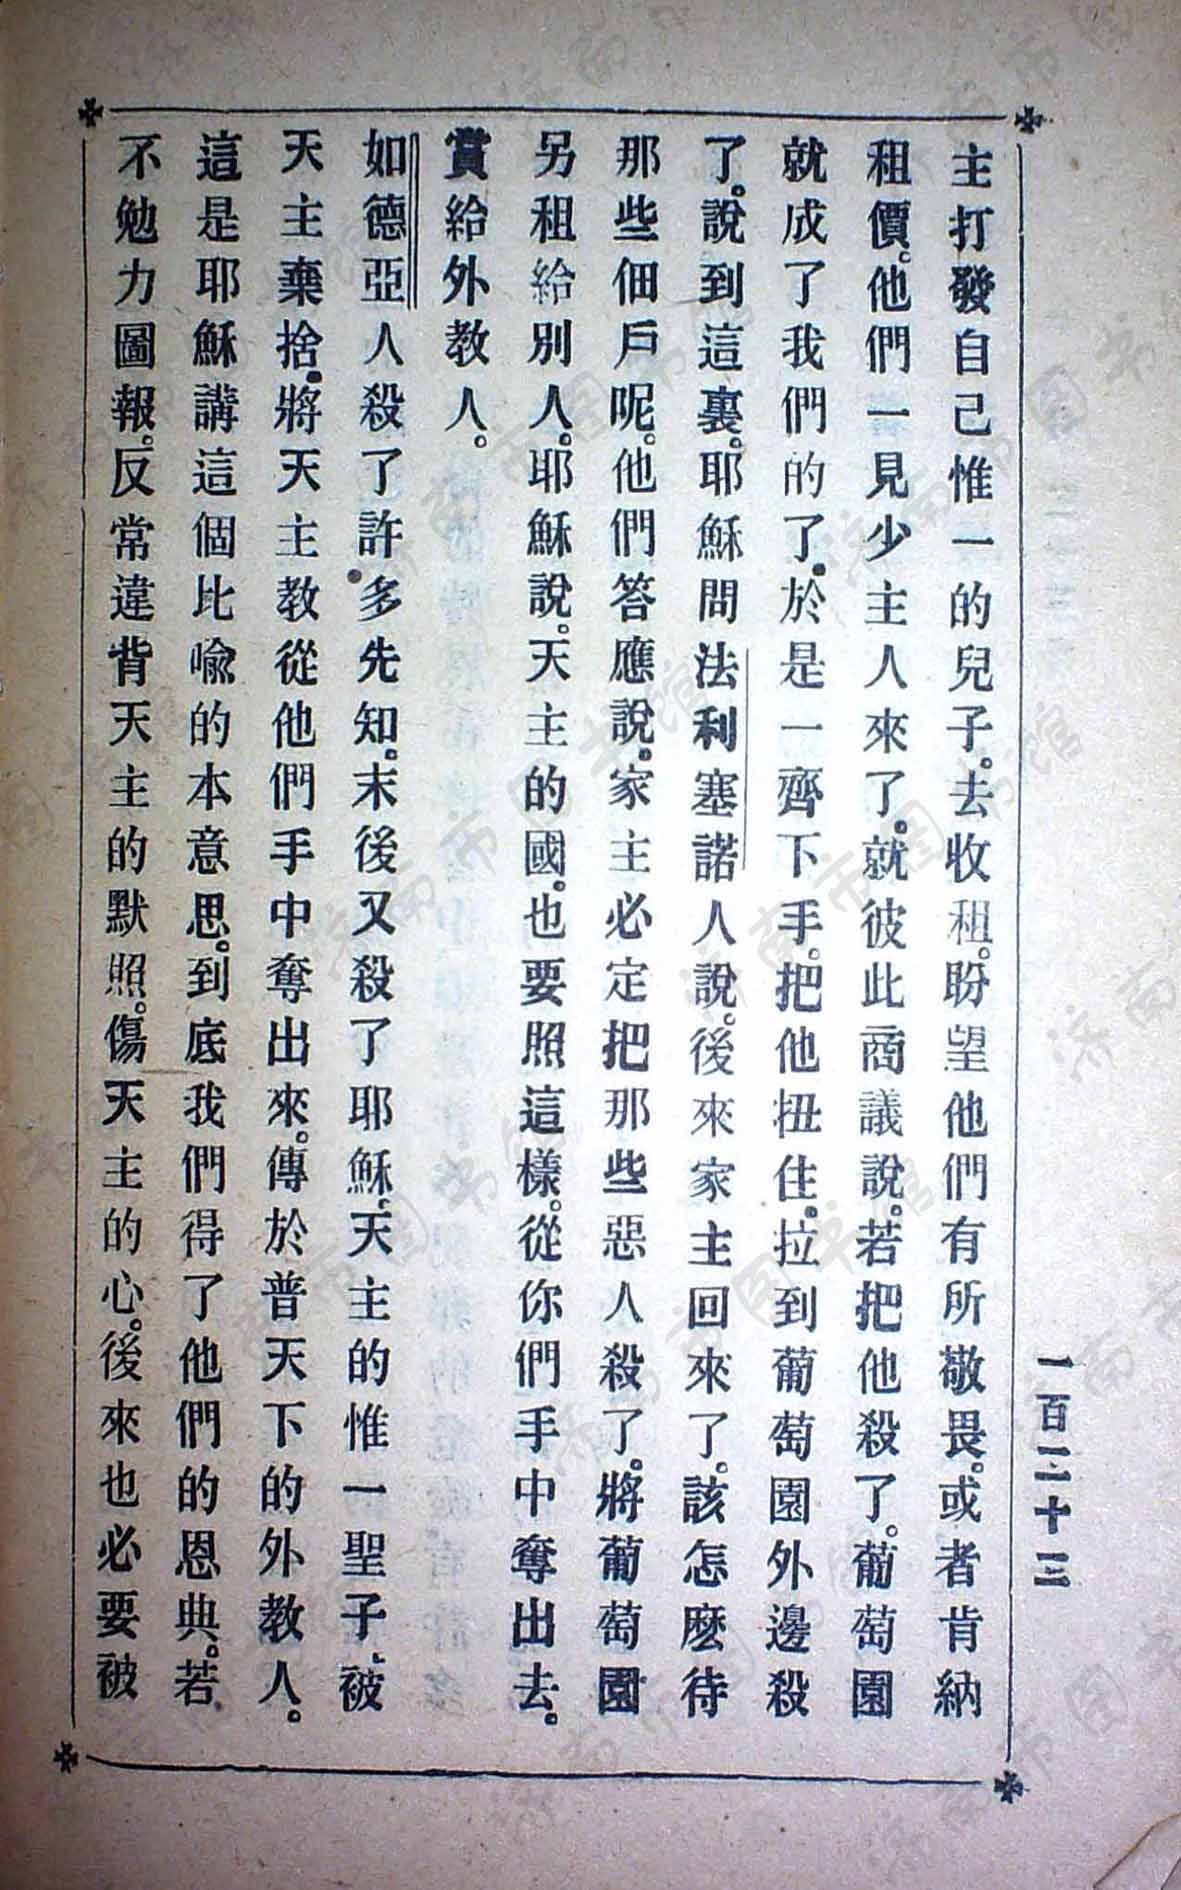 一百二十三
主打發自己惟一的兒子。去收租。盼望他們有所敬畏。或者肯納
租價。他們一見少主人來了。就彼此商議說。若把他殺了。葡萄園
就成了我們的了。於是一齊下手。把他扭住。拉到葡萄園外邊殺
了。說到這裏。耶穌問法利塞諾人說。後來家主回來了。該怎麽待
那些佃戶呢。他們答應說。家主必定把那些惡人殺了。將葡萄園
另租給別人。耶穌說。天主的國。也要照這樣。從你們手中奪出去。
賞給外教人。
如德亞人殺了許多先知。末後又殺了耶穌、天主的惟一聖子、被
天主棄捨。將天主教從他們手中奪出來。傳於普天下的外教人。
這是耶穌講這個比喻的本意思。到底我們得了他們的恩典。若
不勉力圖報。反常違背天主的默照。傷天主的心。後來也必要被
济南市图书馆